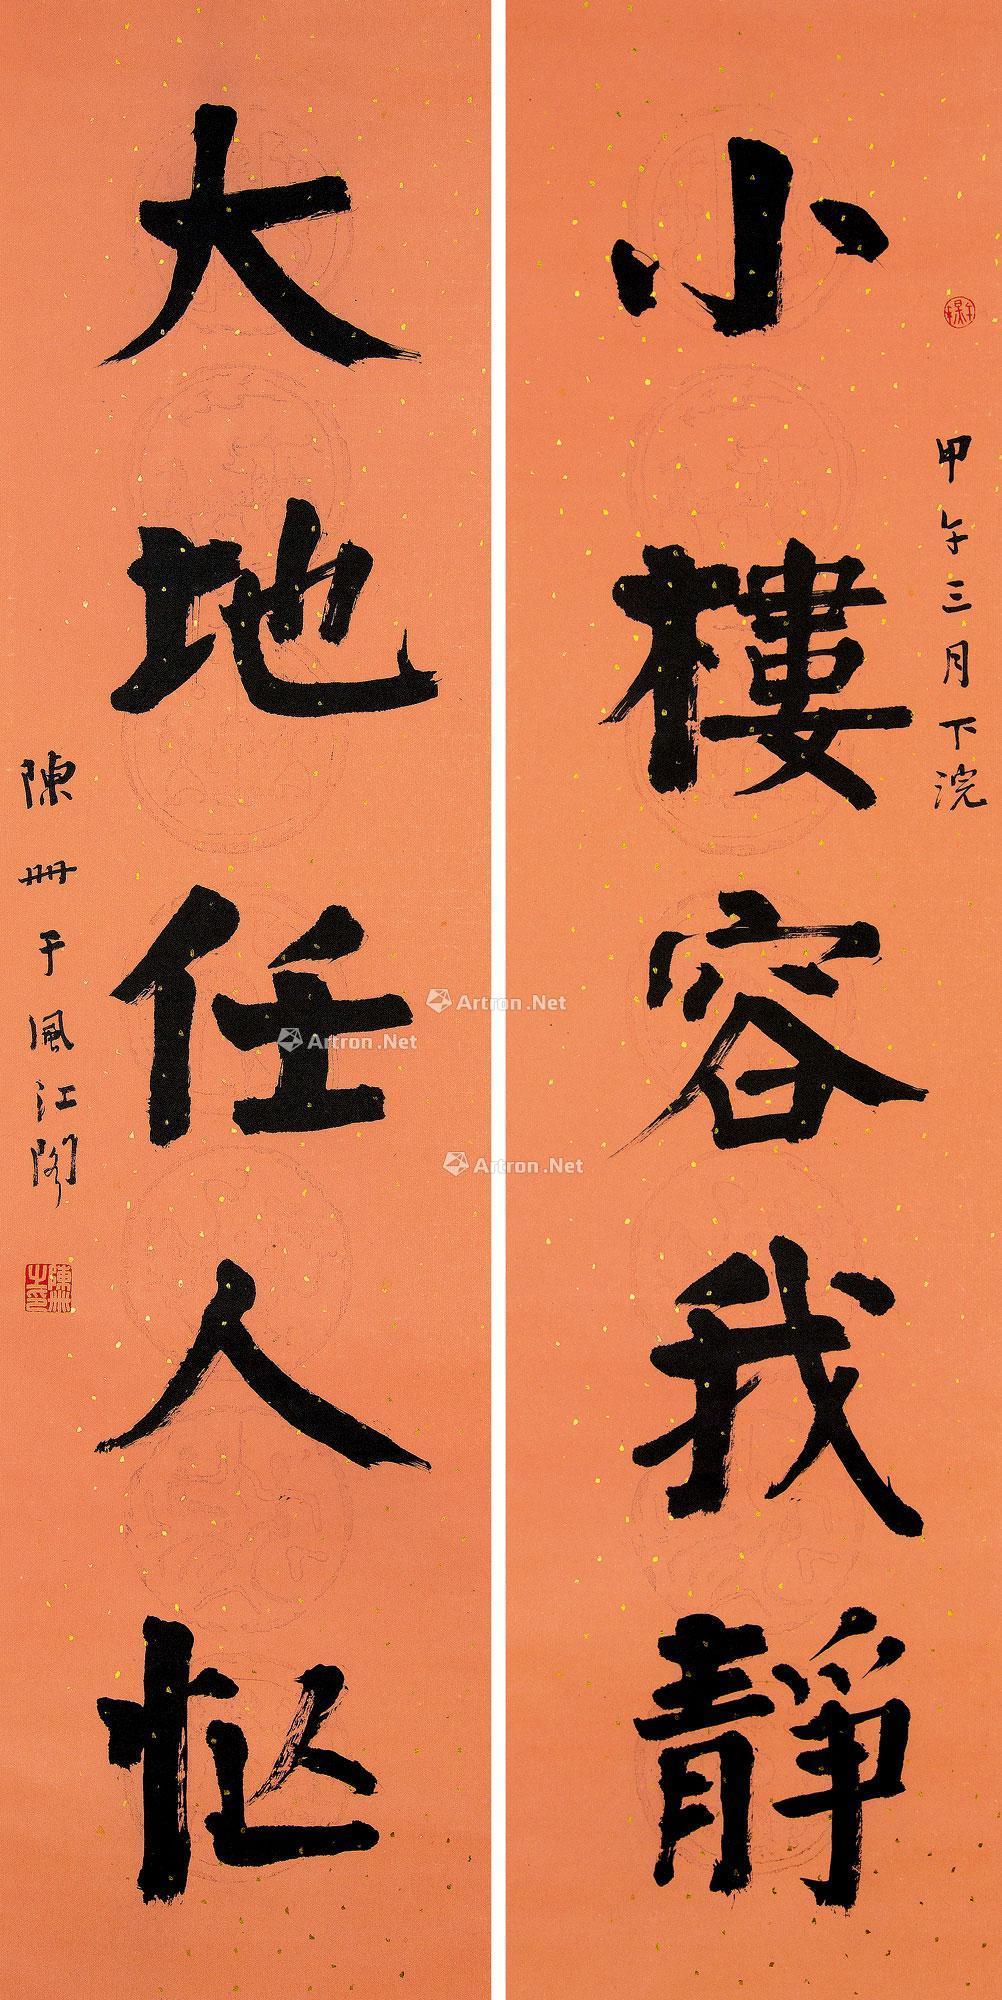 甲午三月下浣
小樓容我靜
大地任人忙
陳卌于風江閣
陳卌之印
Artron.Net
Artron.Net
Artron.Net